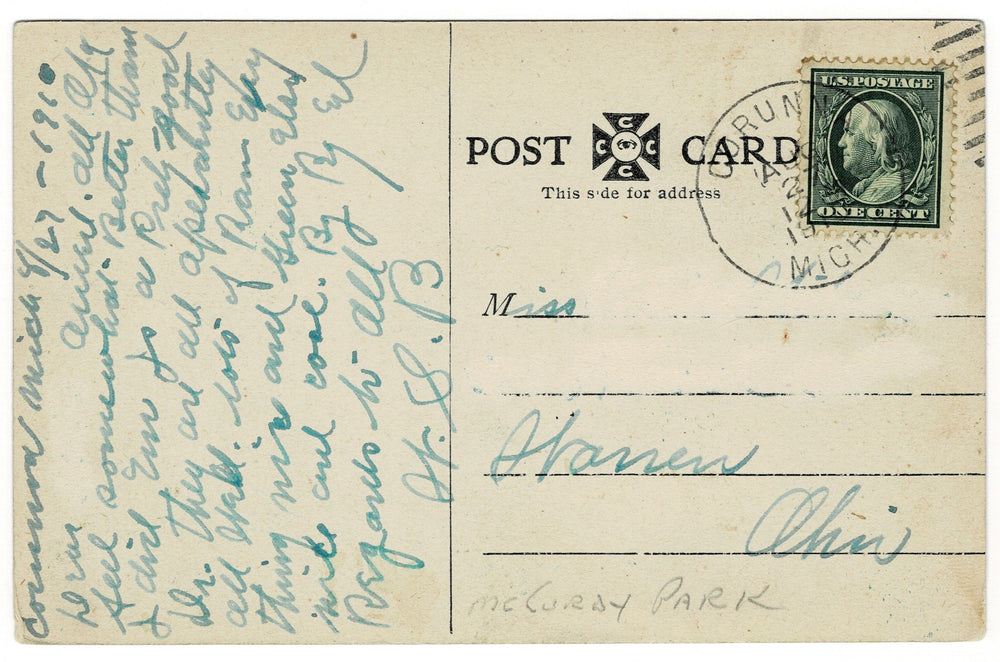 Corunna Mich 8/27 - 1910
Dear all
feel somewhat Better than
I did Em is a Prety good
Dr. they are all apearantly
all Well. lots of Rain Evry
thing nice and Green also
nice and cool. By By Ed
Regards to all
H. S. B
POST CARD
C C C C
This side for address
U.S. POSTAGE
ONE CENT
CORUNNA
MICH.
Miss
Warren
Ohio
McCurdy Park